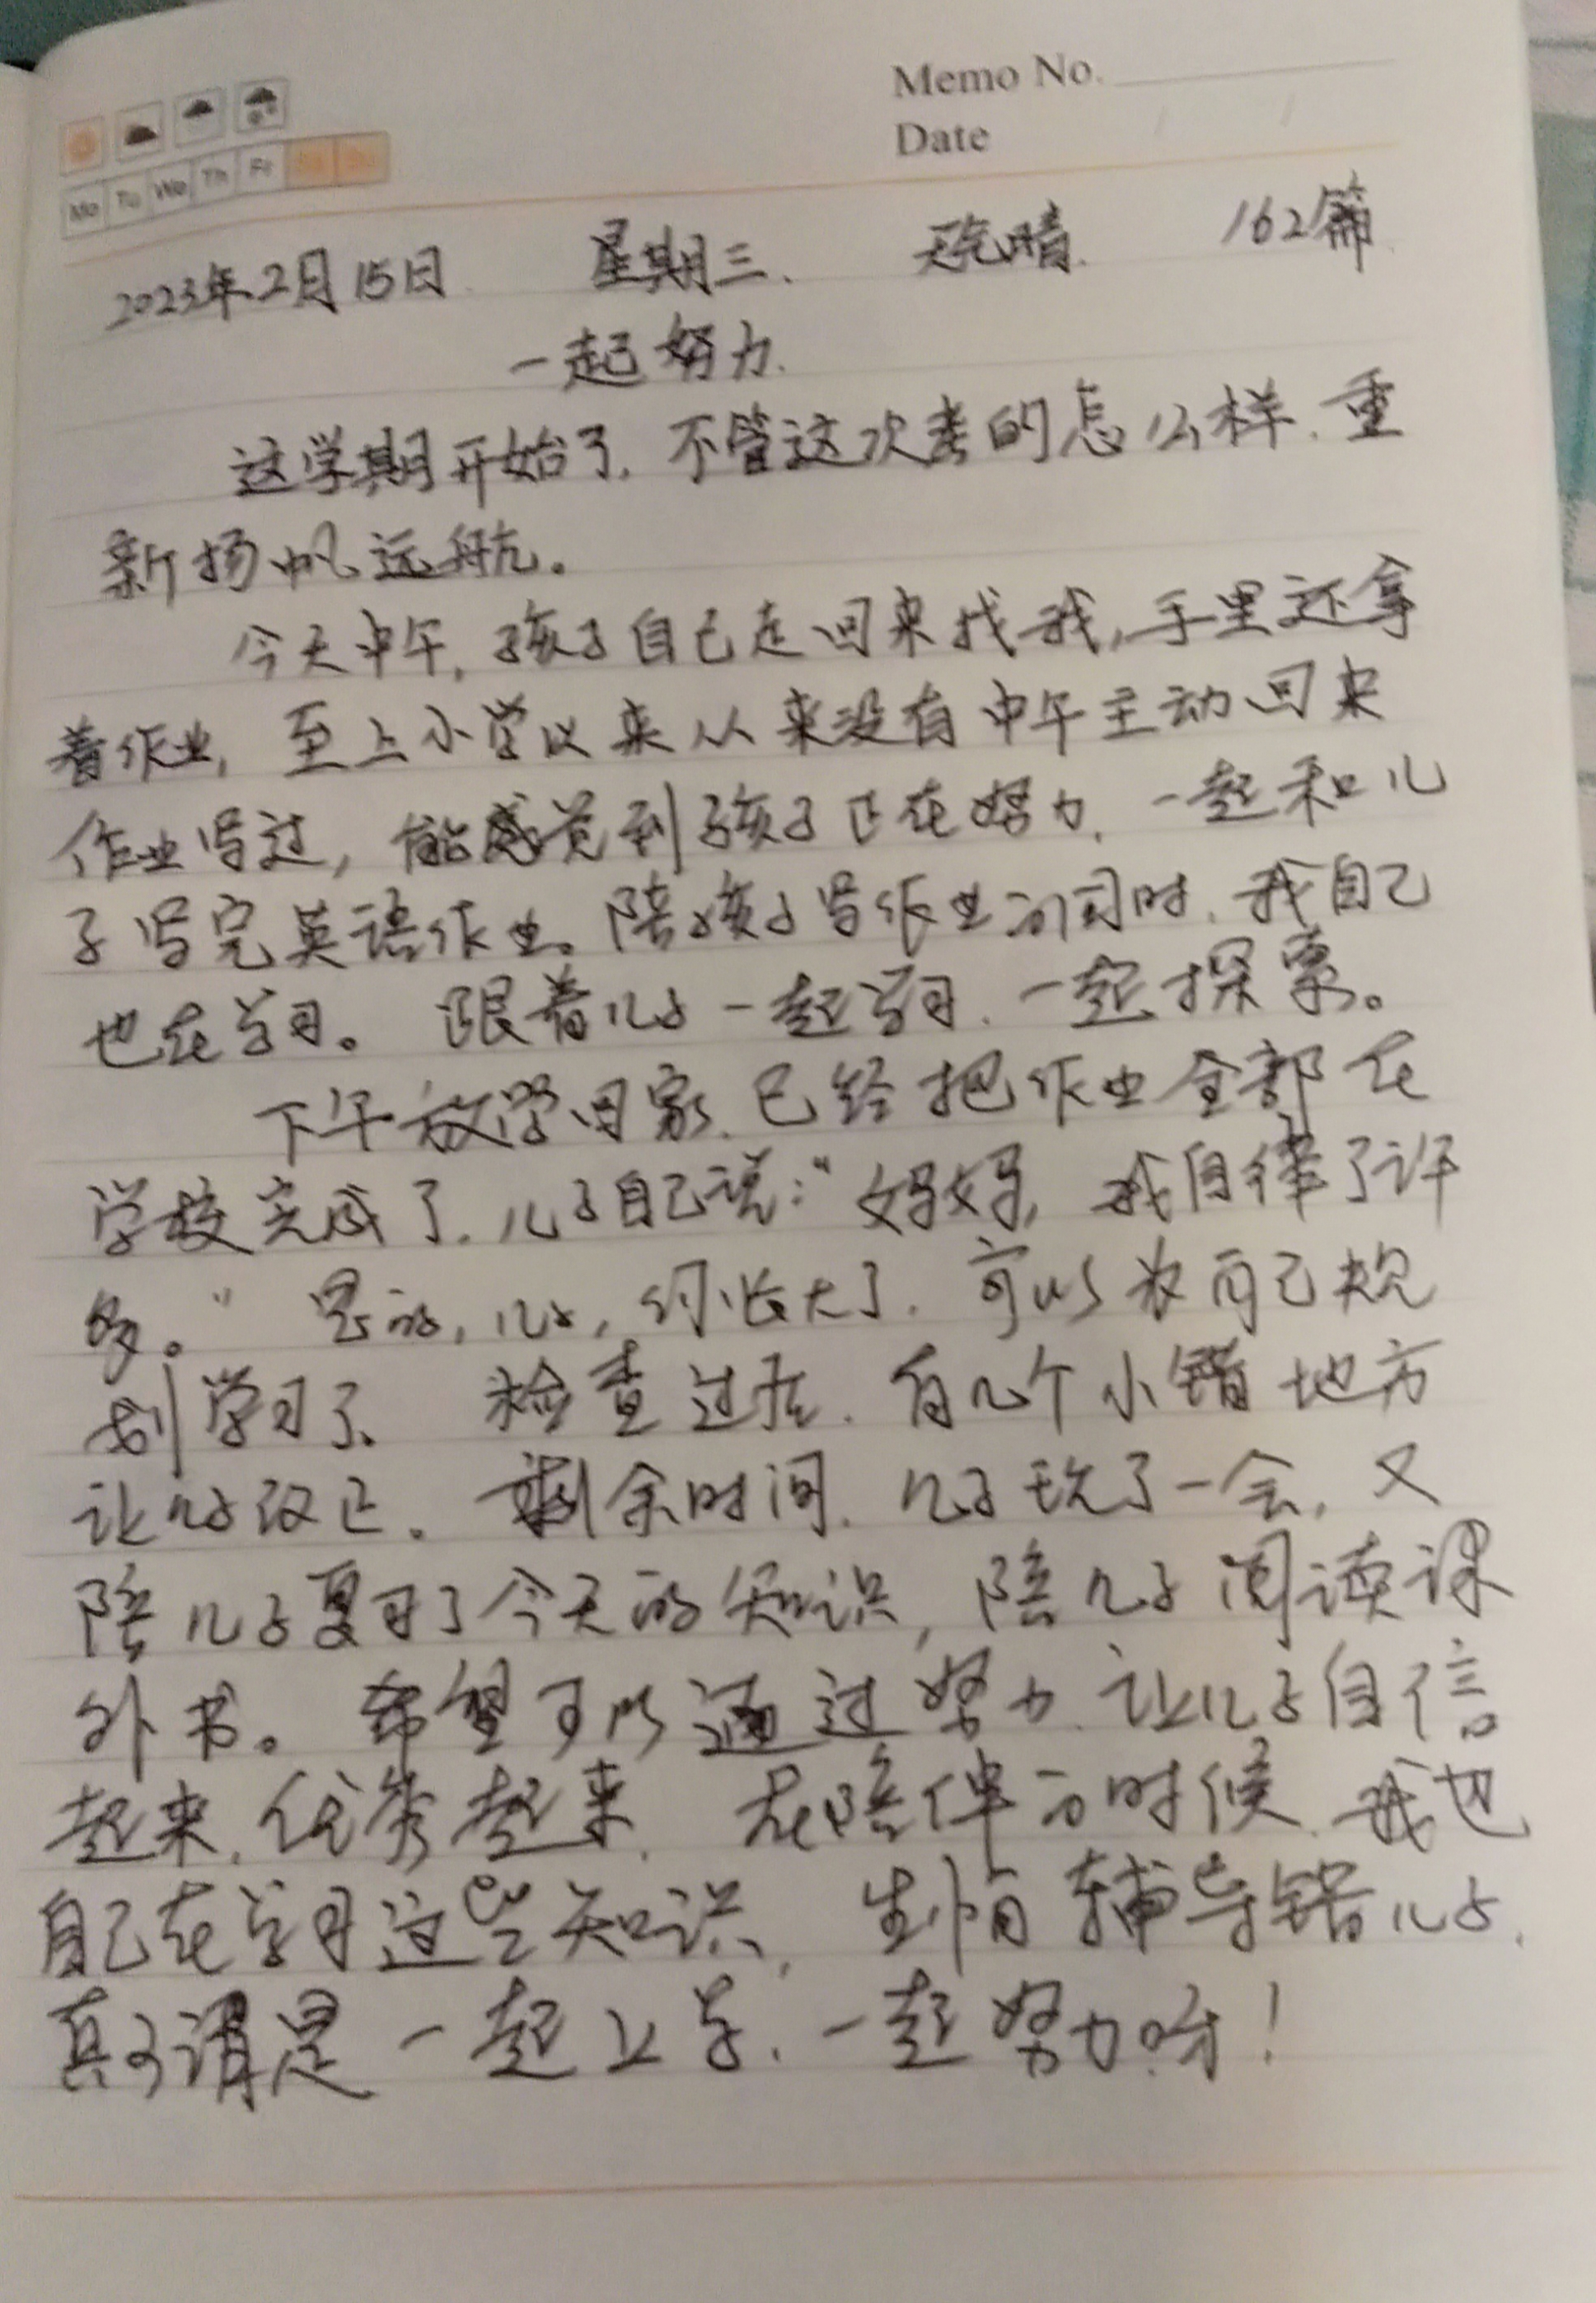 Memo No.
Date
Mo Tu We Th Fr Sa Su
2023年2月15日 星期三. 天气晴. 162篇.
一起努力.
这学期开始了. 不管这次考的怎么样. 重
新扬帆远航。
今天中午, 孩子自己走回来找我, 手里还拿
着作业, 至上小学以来从来没有中午主动回来
作业写过, 能感觉到孩子正在努力, 一起和儿
子写完英语作业。陪孩子写作业的同时, 我自己
也在学习。 跟着儿子一起学习, 一起探索。
下午放学回家, 已经把作业全部在
学校完成了. 儿子自己说:“妈妈, 我自律了许
多。” 是的, 儿子, 你长大了. 可以为自己规
划学习了. 检查过后. 有几个小错地方
让儿子改正. 剩余时间. 儿子玩了一会, 又
陪儿子复习了今天的知识, 陪儿子阅读课
外书。 希望可以通过努力. 让儿子自信
起来. 优秀起来. 在陪伴的时候. 我也
自己在学习这些知识, 生怕辅导错儿子.
真可谓是一起上学. 一起努力呀!